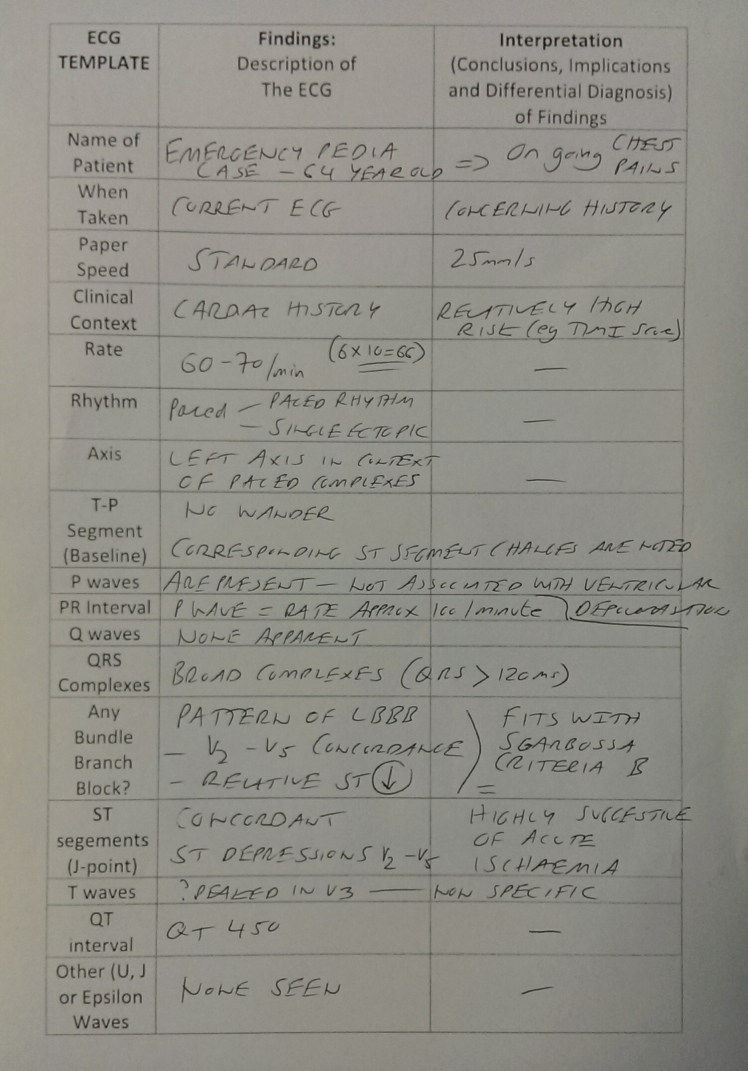 ECG TEMPLATE
Findings:
Description of
The ECG
Interpretation
(Conclusions, Implications
and Differential Diagnosis)
of Findings
Name of
Patient
EMERGENCY PEDIA
CASE - 64 YEAR OLD
=> On going CHEST
PAINS
When
Taken
CURRENT ECG
CONCERNING HISTORY
Paper
Speed
STANDARD
25mm/s
Clinical
Context
CARDAC HISTORY
RELATIVELY HIGH
RISK (eg TIMI Score)
Rate
60-70/min (6x10=66)
—
Rhythm
Paced - PACED RHYTHM
- SINGLE ECTOPIC
—
Axis
LEFT AXIS IN CONTEXT
OF PACED COMPLEXES
—
T-P
Segment
(Baseline)
NO WANDER
CORRESPONDING ST SEGMENT CHANGES ARE NOTED
P waves
ARE PRESENT - NOT ASSOCIATED WITH VENTRICULAR
PR Interval
P WAVE = RATE APPROX 100/minute
DEPOLARISATION
Q waves
NONE APPARENT
QRS
Complexes
BROAD COMPLEXES (QRS > 120ms)
Any
Bundle
Branch
Block?
PATTERN OF LBBB
- V2 - V5 CONCORDANCE
- RELATIVE ST ↓
FITS WITH
SGARBOSSA
CRITERIA B
ST
segements
(J-point)
CONCORDANT
ST DEPRESSIONS V2-V5
HIGHLY SUGGESTIVE
OF ACUTE
ISCHAEMIA
T waves
? PEAKED IN V3 — NON SPECIFIC
QT
interval
QT 450
—
Other (U, J
or Epsilon
Waves
NONE SEEN
—